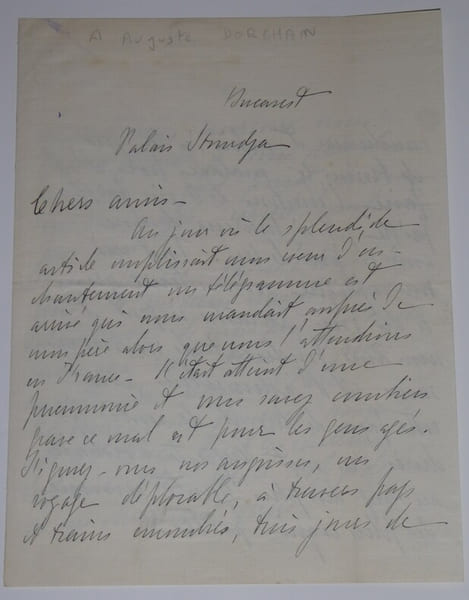 A Auguste DORCHAIN
Bucarest
Palais Stourdza
Chers amis –
Au jour où le splendide
article emplissait nos d'en-
chantement un télégramme est
arrivé qui nous mandait auprès de
mon père alors que nous l'attendions
en France – Il était atteint d'une
pneumonie et vous savez combien
grave ce mal est pour les gens agés.
Figurez-vous nos angoisses, un
voyage déplorable, à travers pays
et trains encombrés, trois jours de